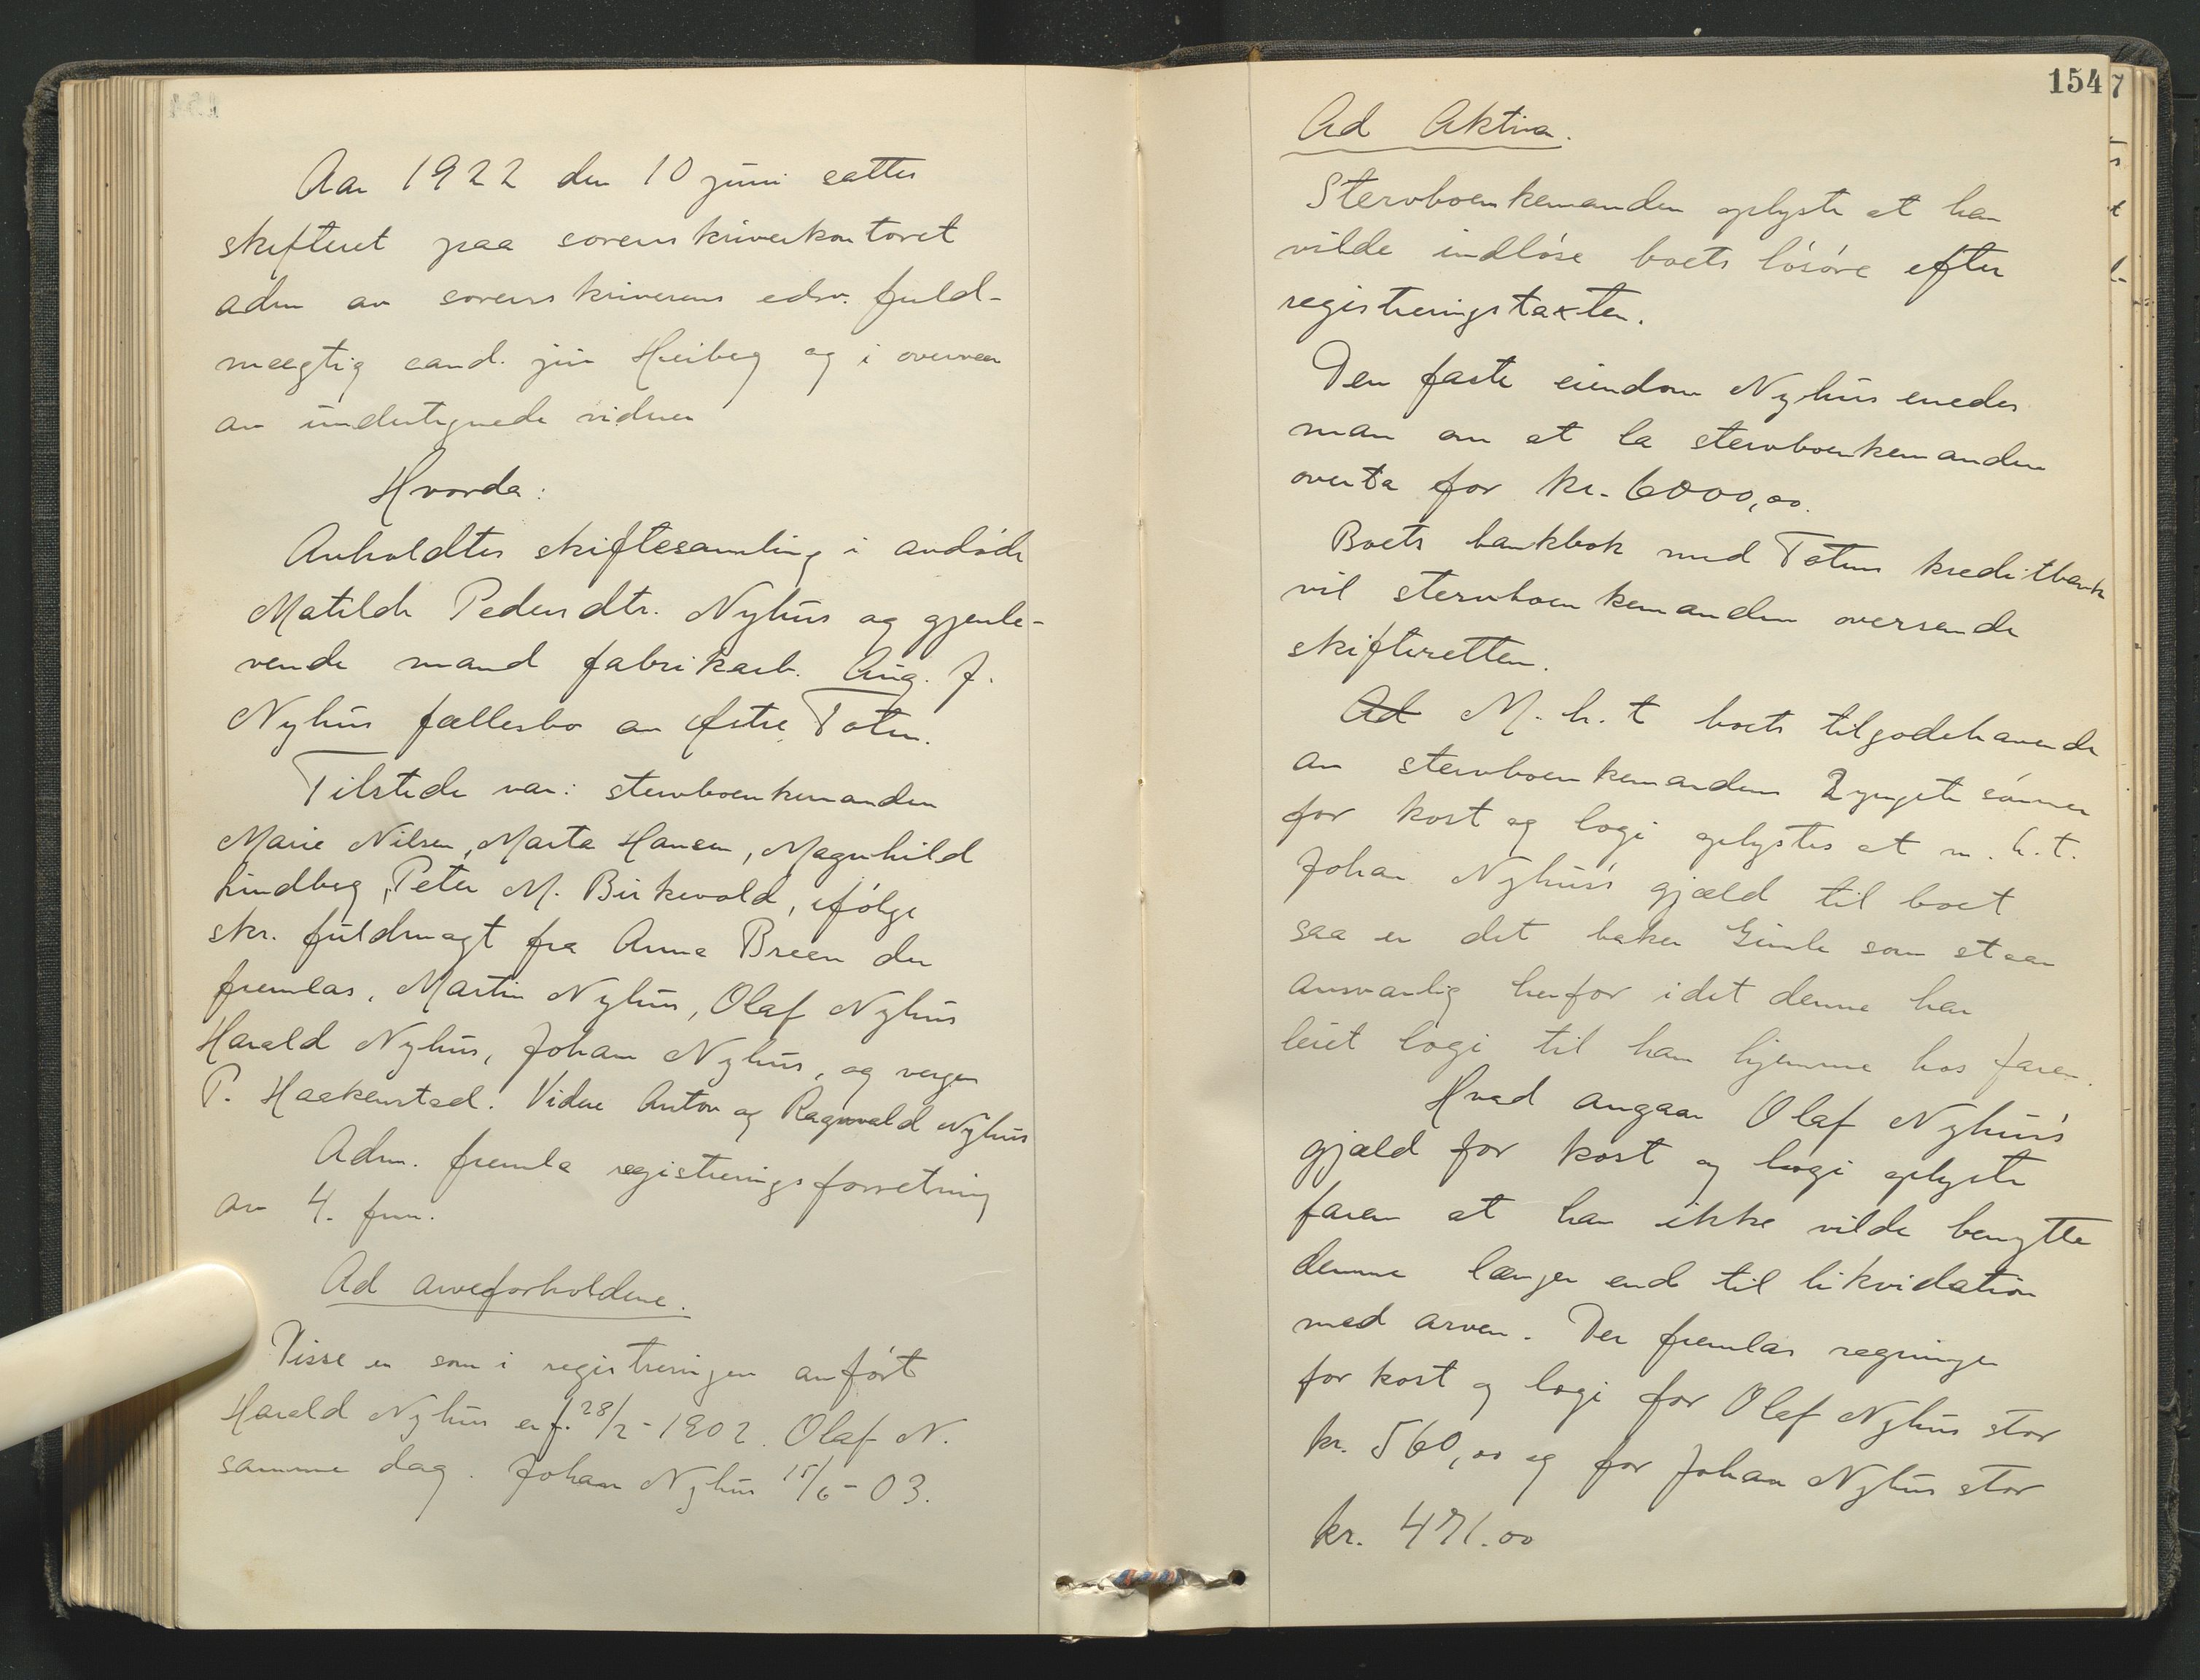 Aar 1922 den 10 juni sattes
skifteret paa sorenskriverkontoret
adm av sorenskriverens edsv. fuld-
mægtig cand. jur Heiberg og i overvær
av undertegnede vidner
Hvorda:
Avholdtes skiftesamling i avdøde
Matilde Pedersdtr. Nyhus og gjenle-
vende mand fabrikarb. Aug. J.
Nyhus fællesbo av Østre Toten.
Tilstede var: stervboenkemanden
Marie Nilsen, Marta Hansen, Magnhild
Lindberg, Peter M. Birkevold, ifølge
skr. fuldmagt fra Anna Breen der
fremlas, Martin Nyhus, Olaf Nyhus
Harald Nyhus, Johan Nyhus, og vergen
P. Haakenstad. Videre Anton og Ragnvald Nyhus
Adm. fremla registreringsforretning
av 4. fm.
Ad arveforholdene.
Disse er som i registreringen anført
Harald Nyhus er f. 28/2-1902. Olaf N.
samme dag. Johan Nyhus 15/6-03.
154
7
Ad Aktiva.
Stervboenkemanden oplyste at han
vilde indløse boets løsøre efter
registreringstaxten.
Den faste eiendom Nyhus enedes
man om at la stervboenkemanden
overta for kr. 6000,00.
Boets bankbok med Totens kreditbank
vil stervboenkemanden oversende
skifteretten.
Ad M.h.t boets tilgodehavende
av stervboenkemandens 2 yngste sønner
for kost og logi oplystes at m.h.t.
Johan Nyhus's gjæld til boet
saa er det baker Gimle som staar
ansvarlig herfor idet denne har
leiet logi til ham hjemme hos faren.
Hvad angaar Olaf Nyhus's
gjæld for kost og logi oplyste
faren at han ikke vilde benytte
denne længer end til likvidation
med arven. Der fremlas regninger
for kost og logi for Olaf Nyhus stor
kr. 560,00 og for Johan Nyhus stor
kr. 471.00